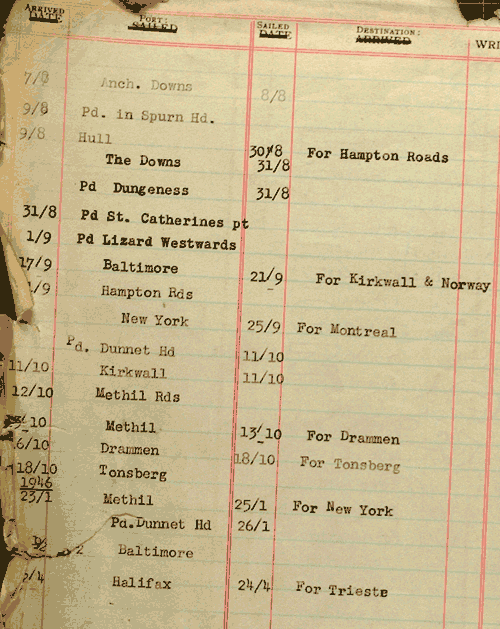 ARRIVED DATE PORT: SAILED SAILED DATE DESTINATION: ARRIVED
WRI
7/8 Anch. Downs 8/8
9/8 Pd. in Spurn Hd.
9/8 Hull 30/8 For Hampton Roads
The Downs 31/8
Pd Dungeness 31/8
31/8 Pd St. Catherines pt
1/9 Pd Lizard Westwards
17/9 Baltimore 21/9 For Kirkwall & Norway
/9 Hampton Rds
New York 25/9 For Montreal
Pd. Dunnet Hd 11/10
11/10 Kirkwall 11/10
12/10 Methil Rds
/10 Methil 13/10 For Drammen
6/10 Drammen 18/10 For Tonsberg
18/10 Tonsberg
1946
23/1 Methil 25/1 For New York
Pd.Dunnet Hd 26/1
2 Baltimore
/4 Halifax 24/4 For Trieste